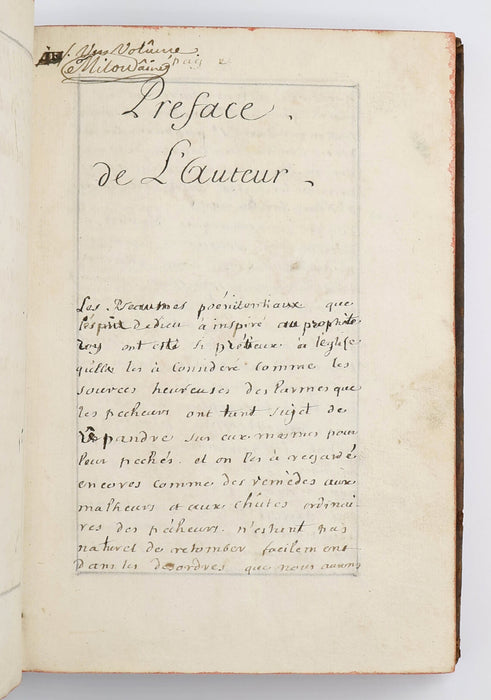 Un Volume
Miloudainé
Preface
de L'Auteur
Les Pseaumes poénitentiaux que
l'esprit de dieu à inspiré au prophete
roy ont été si prétieux à l'eglise
qu'elle les à consideré comme les
sources heureuses des larmes que
les pecheurs ont tant sujet de
répandre sur eux mesmes pour
leur pechés. et on les à regardé
encores comme des remèdes aux
malheurs et aux chûtes ordinai-
res des pécheurs. n'estant pas
naturel de retomber facilement
Dans les desordres que nous aurons